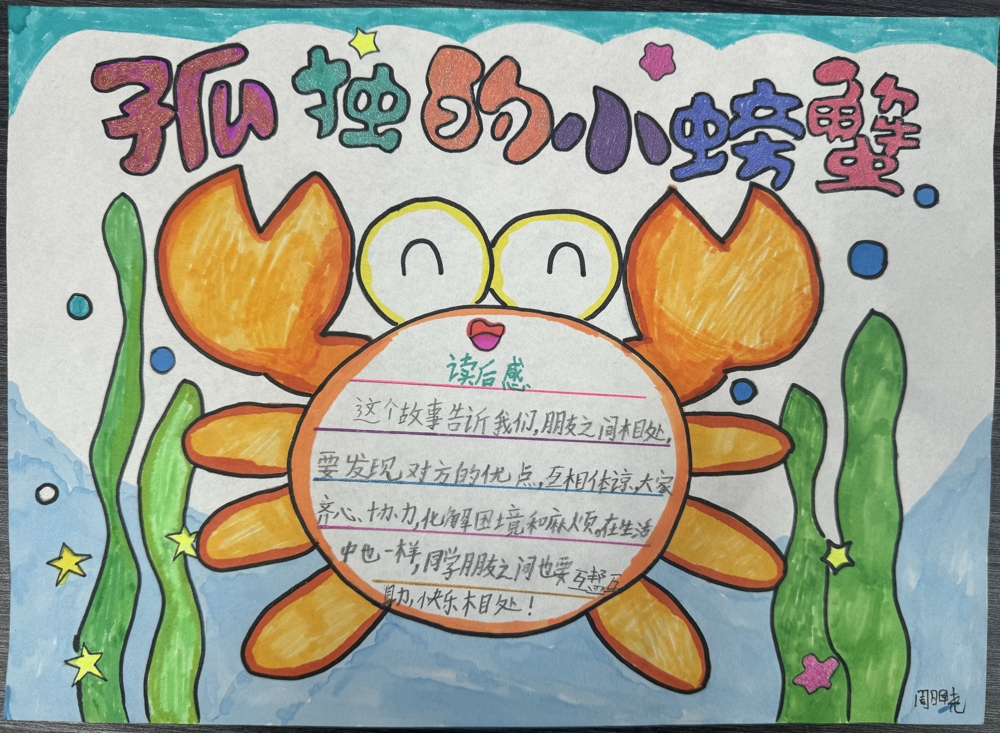 孤独的小螃蟹
读后感
这个故事告诉我们,朋友之间相处,
要发现对方的优点,互相体谅,大家
齐心、协力,化解困境和麻烦。在生活
中也一样,同学朋友之间也要互帮互
助,快乐相处!